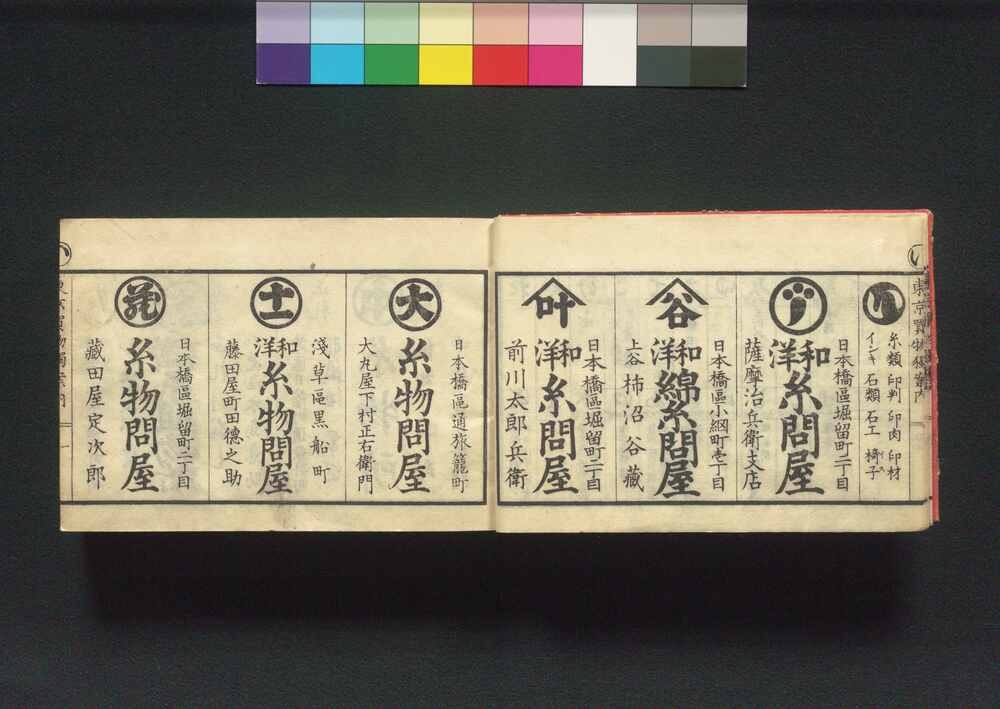 東京買物獨案内
い
糸類 印判 印肉 印材
インキ 石類 石工 椅子
日本橋區堀留町二丁目
和洋糸問屋
薩摩治兵衛支店
谷
日本橋區小網町壱丁目
和洋綿糸問屋
上谷 柿沼谷藏
叶
日本橋區堀留町二丁目
和洋糸問屋
前川太郎兵衛
大
日本橋區通旅籠町
糸物問屋
大丸屋下村正右衛門
十一
淺草區黒船町
和洋糸物問屋
藤田屋町田德之助
藏
日本橋區堀留町二丁目
糸物問屋
藏田屋定次郎